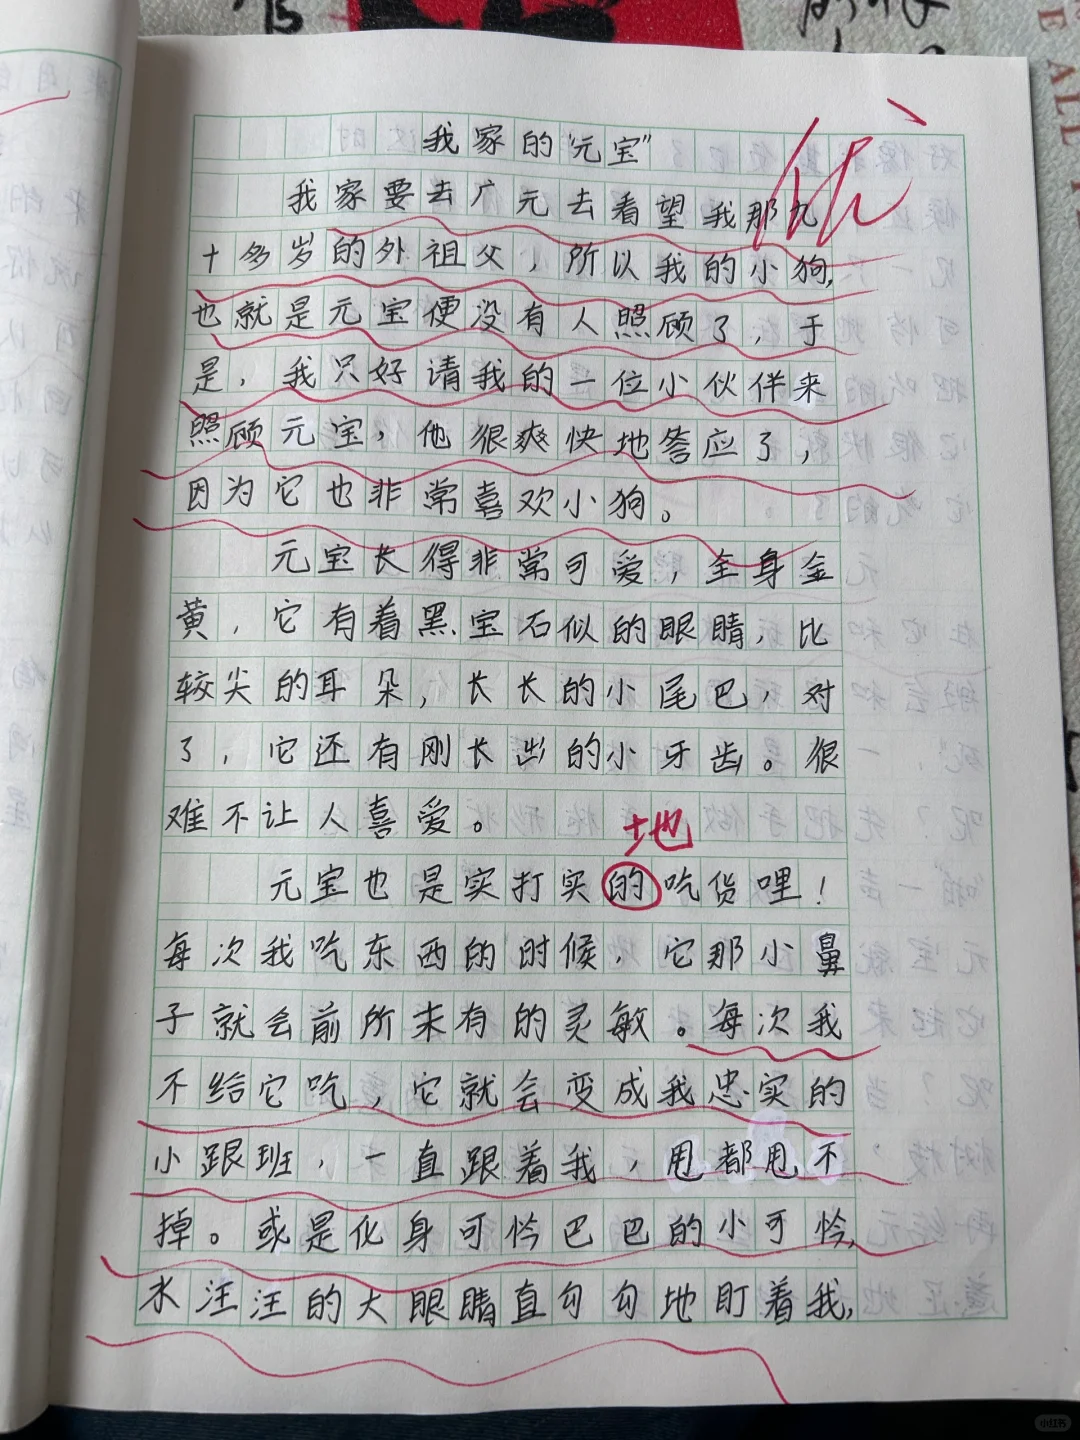 我家的“元宝”
我家要去广元去看望我那九
十多岁的外祖父，所以我的小狗，
也就是元宝便没有人照顾了，于
是，我只好请我的一位小伙伴来
照顾元宝，他很爽快地答应了，
因为它也非常喜欢小狗。
元宝长得非常可爱，全身金
黄，它有着黑宝石似的眼睛，比
较尖的耳朵，长长的小尾巴，对
了，它还有刚长出的小牙齿。很
难不让人喜爱。
地
元宝也是实打实的吃货哩！
每次我吃东西的时候，它那小鼻
子就会前所未有的灵敏。每次我
不给它吃，它就会变成我忠实的
小跟班，一直跟着我，甩都甩不
掉。或是化身可怜巴巴的小可怜，
水汪汪的大眼睛直勾勾地盯着我，
优
小红书